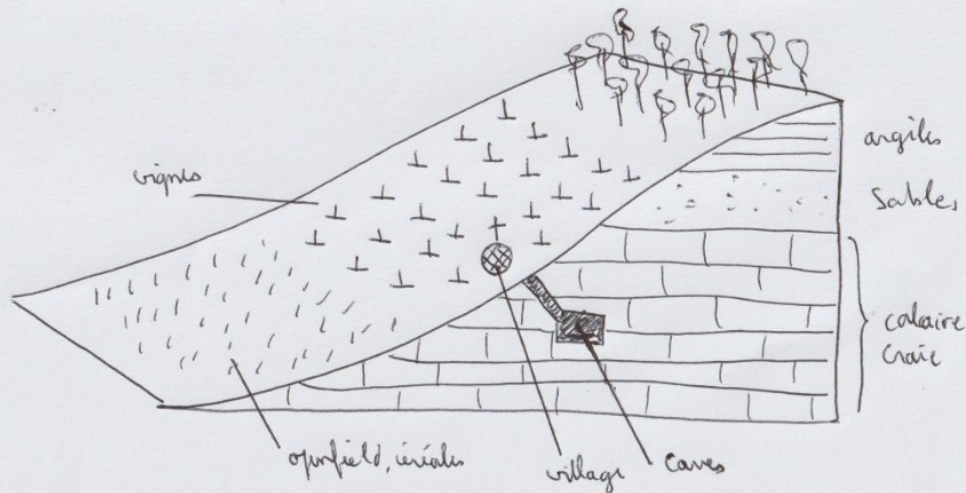 vignes
argiles
Sables
calcaire
craie
openfield, céréales
village
caves